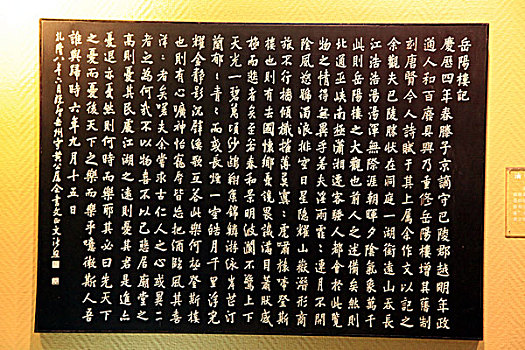 岳陽樓記
慶歷四年春滕子京謫守巴陵郡越明年政
通人和百廢具興乃重修岳陽樓增其舊制
刻唐賢今人詩賦于其上屬余作文以記之
余觀夫巴陵勝狀在洞庭一湖銜遠山吞長
江浩浩湯湯渾無際涯朝暉夕陰氣象萬千
此則岳陽樓之大觀也前人之述備矣然則
北通巫峽南極瀟湘遷客騷人都會於此覽
物之情得無異乎若夫淫雨霏々連月不開
陰風怒號濁浪排空日星隱耀山嶽潛形商
旅不行檣傾楫摧薄暮冥々虎嘯猿啼登斯
樓也則有去國懷鄉憂讒畏譏滿目蕭然感
極而悲者矣至若春和景明波瀾不驚上下
天光一碧萬頃沙鷗翔集錦鱗游泳岸芷汀
蘭郁々青々而或長煙一空皓月千里浮光
耀金靜影沉璧漁歌互答此樂何極登斯樓
也則有心曠神怡寵辱皆忘把酒臨風其喜
洋々者矣嗟夫余嘗求古仁人之心或異二
者之為何哉不以物喜不以己悲居廟堂之
高則憂其民處江湖之遠則憂其君是進亦
憂退亦憂然則何時而樂耶其必曰先天下
之憂而憂後天下之樂而樂乎噫微斯人吾
誰與歸時六年九月十五日
乾隆八年